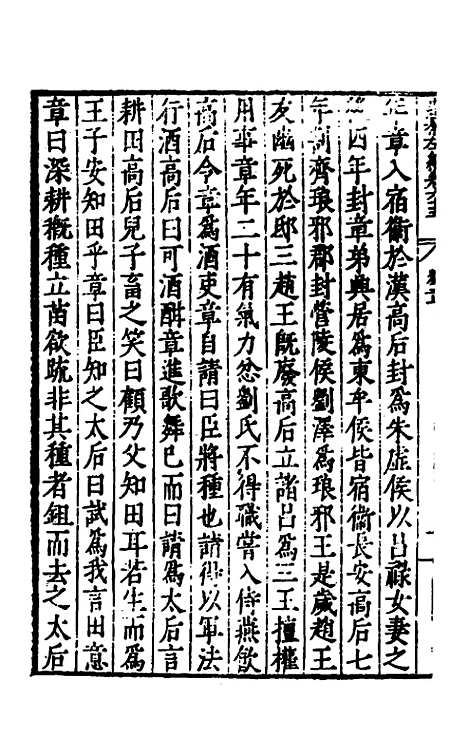 年章入宿衞於漢高后封爲朱虛侯以呂祿女妻之
四年封章弟興居爲東牟侯皆宿衞長安高后七
年割齊琅邪郡封營陵侯劉澤爲琅邪王是歲趙王
友幽死於邸三趙王旣廢高后立諸呂爲三王擅權
用事章年二十有氣力忿劉氏不得職嘗入侍燕飮
高后令章爲酒吏章自請曰臣將種也請得以軍法
行酒高后曰可酒酣章進歌舞已而曰請爲太后言
耕田高后兒子畜之笑曰顧乃父知田耳若生而爲
王子安知田乎章曰臣知之太后曰試爲我言田意
章曰深耕穊種立苗欲疏非其種者鉏而去之太后